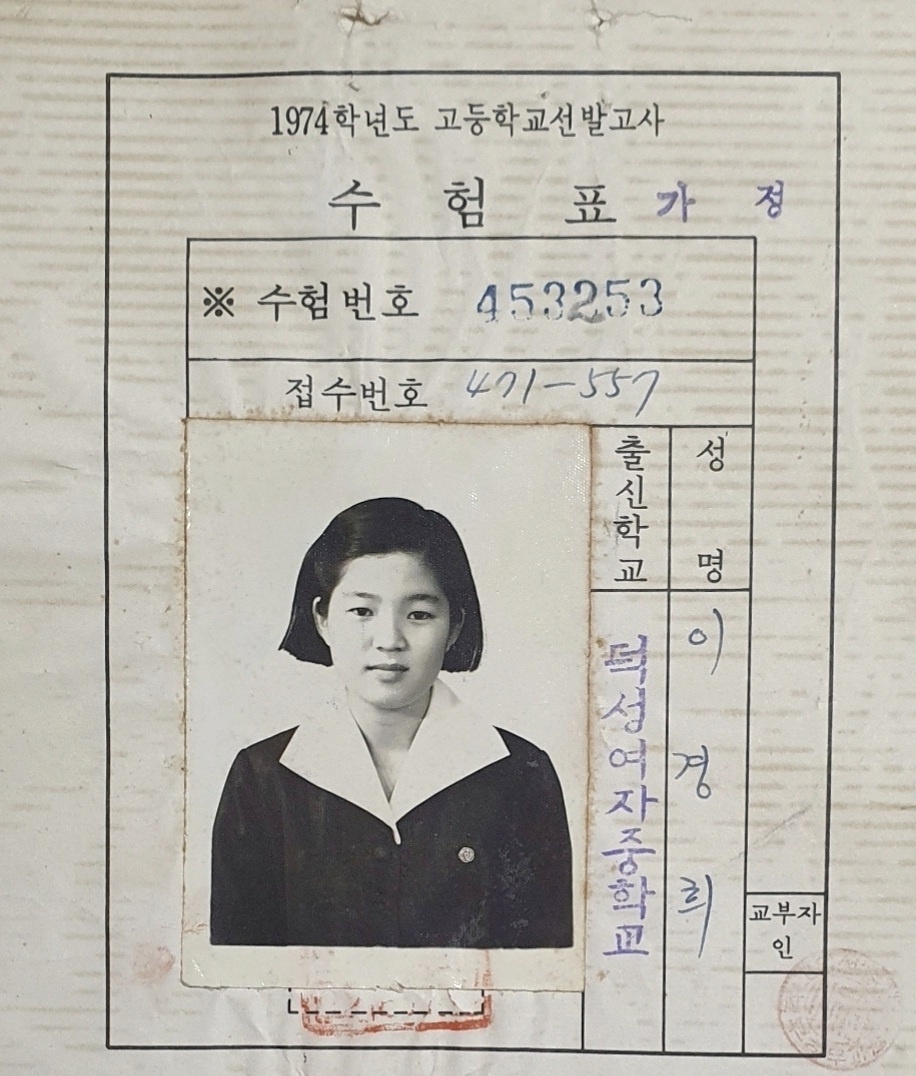 1974학년도 고등학교선발고사
수 험 표 가 정
※ 수험번호 453253
접수번호 471-557
출신학교
덕성여자중학교
성 명
이경희
교부자
인